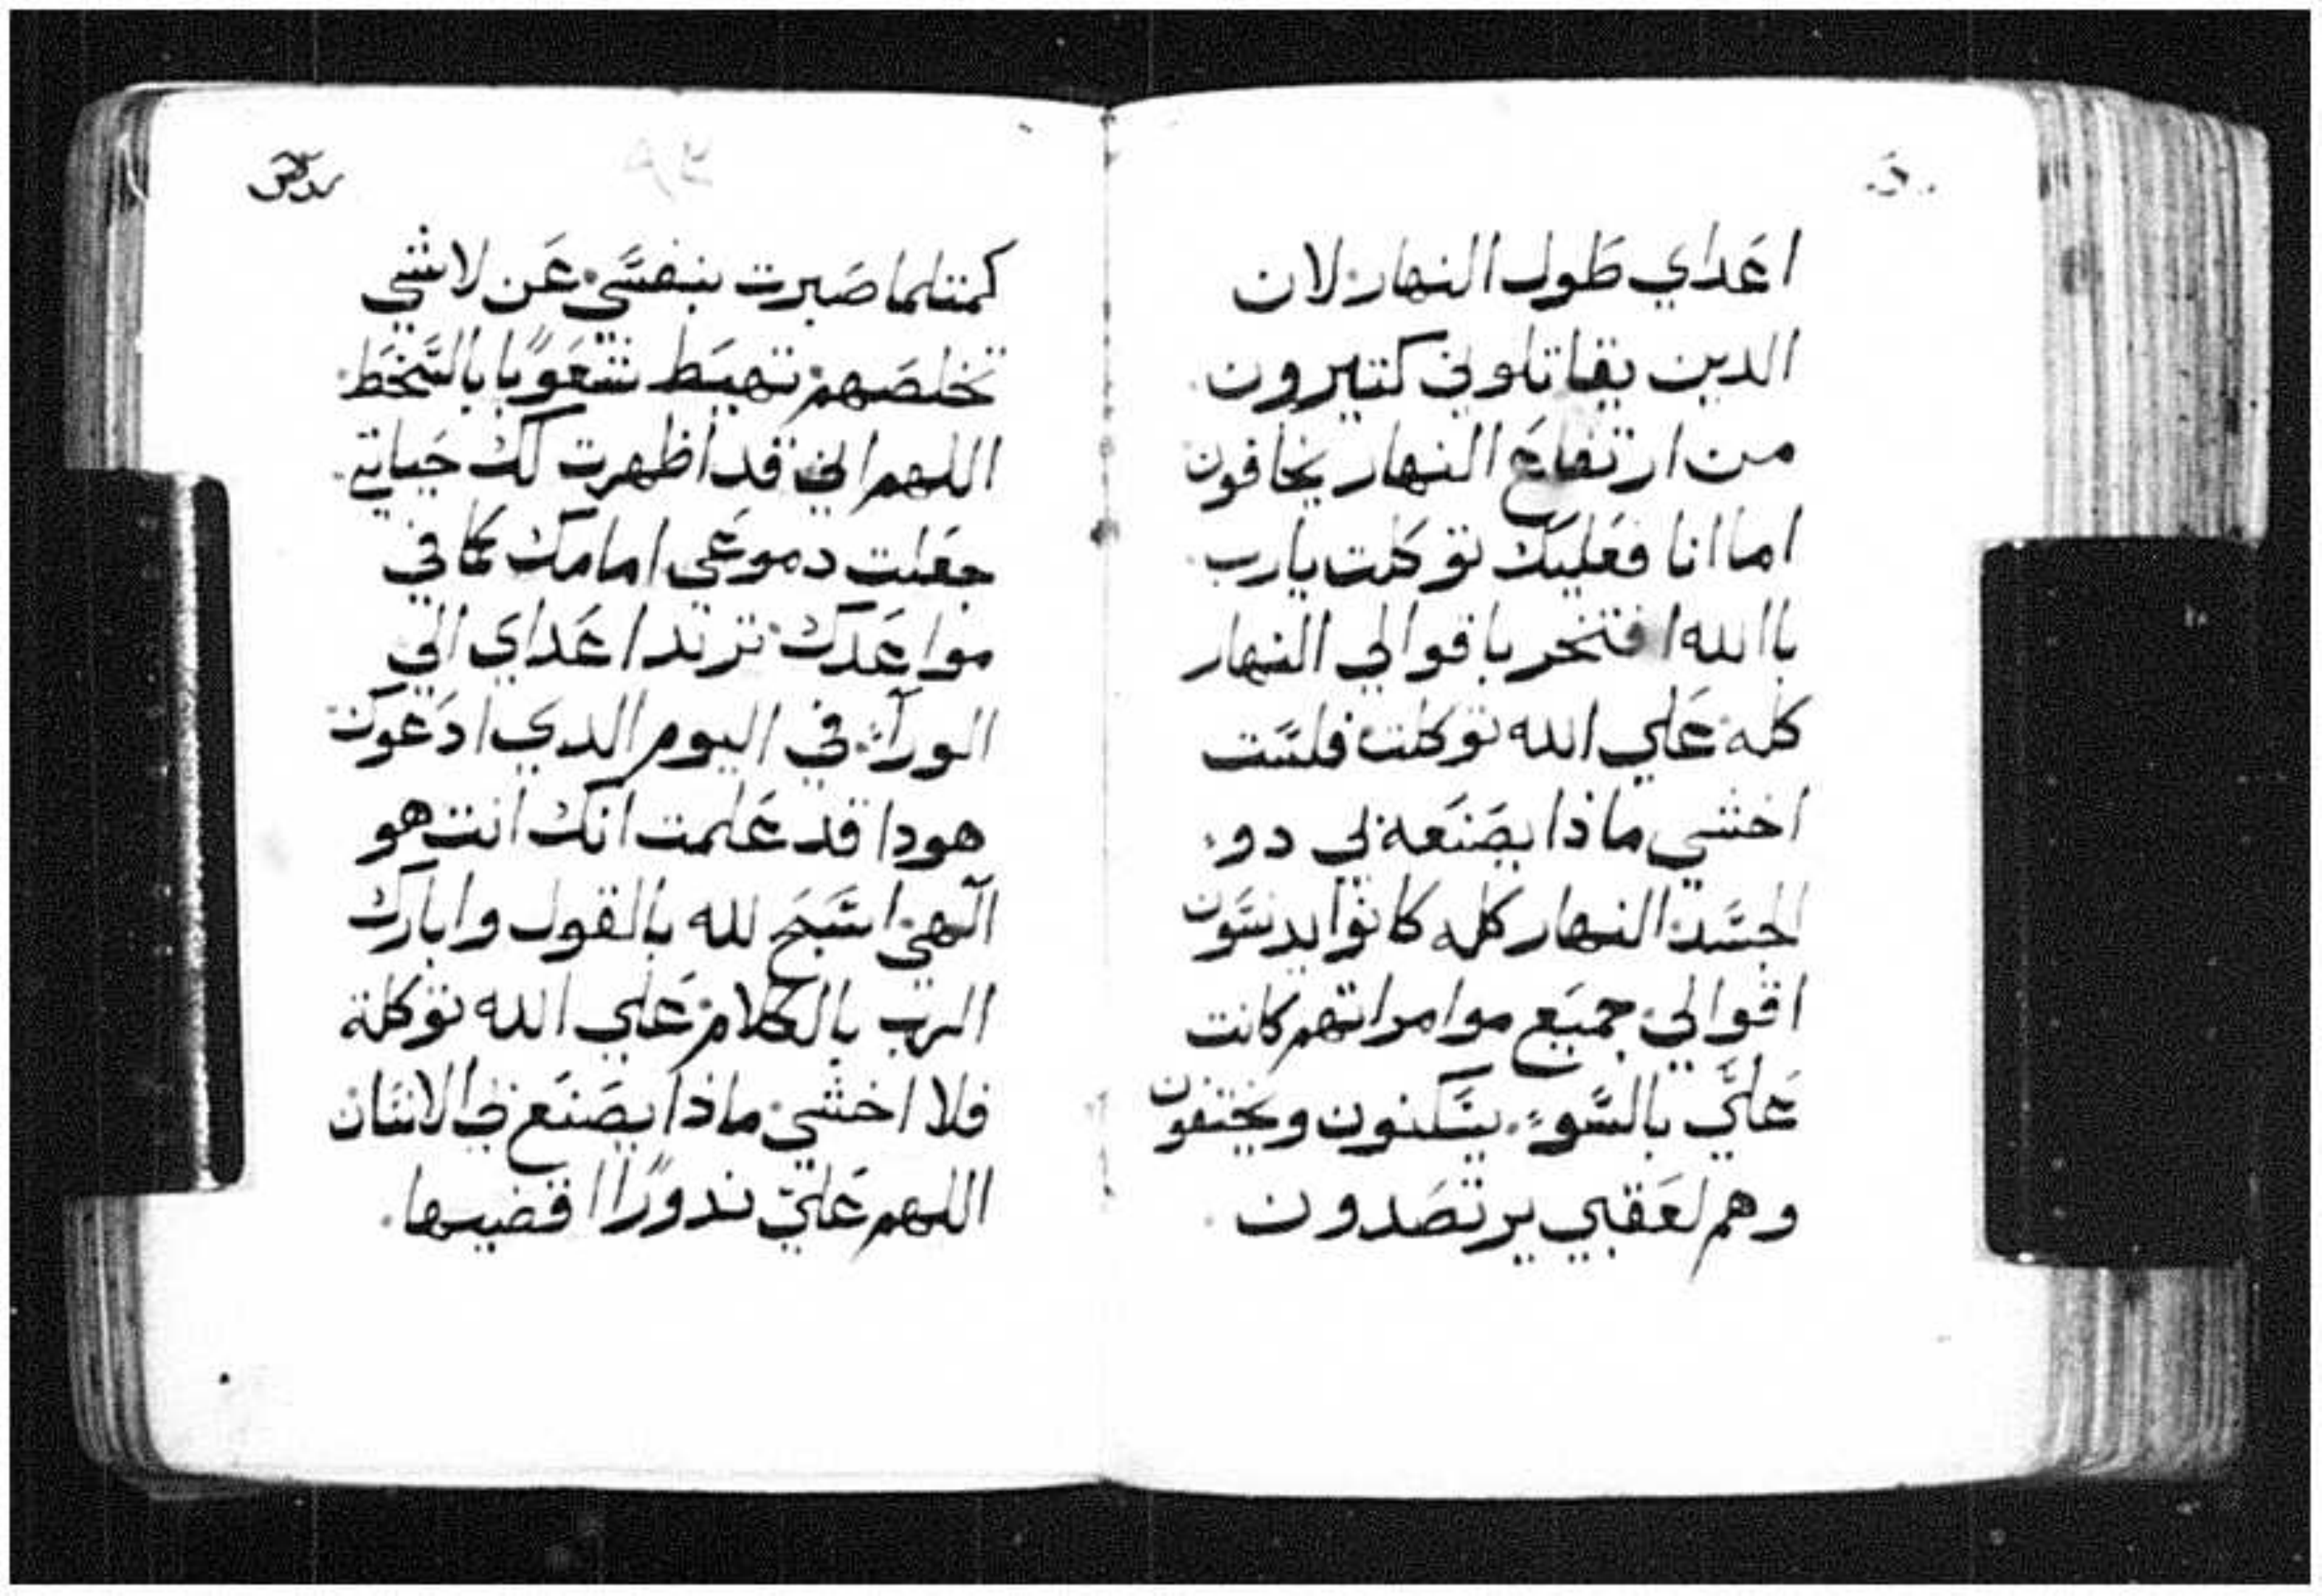 اعَداي طَول النهار لان
الدين يقاتلوني كتيرون
من ارتفاعَ النهار يخافون
اما انا فعَليك توكلت يارب
باالله افتخر باقوالي النهار
كله عَلي الله توكلت فلسَت
اخشي ماذا يصَنعَه لي دو
الجسَد النهار كله كانوا يدنسَون
اقوالي جميَع موامراتهم كانت
عَليَّ بالسَّوء يسَكنون ويختفون
وهم لعَقبي يرتصَدون
كمتلما صَبرت بنفسَي عَن لاشي
تخلصَهم تهبَط شعَوبًا بالسَّخَط
اللهم اني قد اظهرت لك حَياتي
جعَلت دموعَي امامك كما في
مواعَدك ترتد اعَداي الي
الورآء في اليوم الدي ادعَوك
هودا قد عَلمت انك انت هو
الهي اسَبحَ لله بالقول وابارك
الرب بالكلام عَلي الله توكلة
فلا اخشي ماذا يصَنعَ الانسَان
اللهم عَليّ ندورًا اقضيها